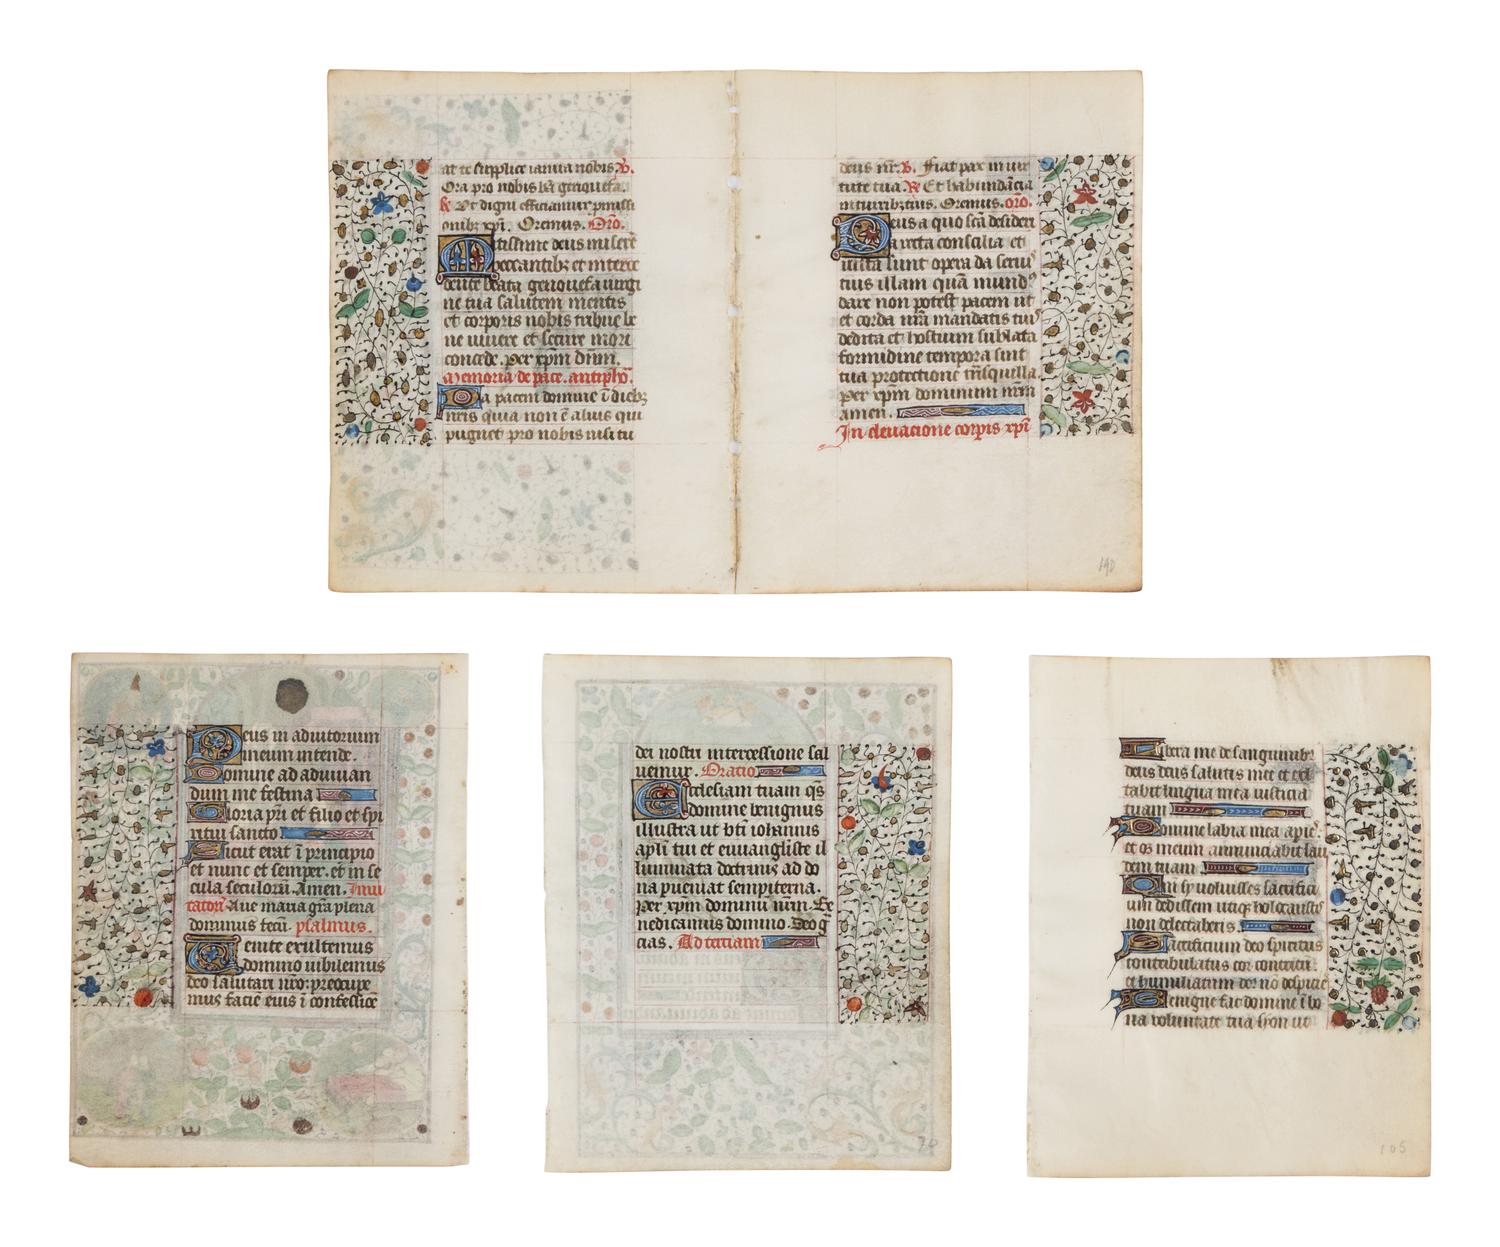 at te supplice ianua nobis. V.
Ora pro nobis bt̄a genouefa.
R Vt digni efficiamur promissi
onibꝫ xp̄i. Oremus. Orō.
Mitissime deus miserē
peccantibꝫ et interce
dente beata genouefa uirgi
ne tua salutem mentis
et corporis nobis tribue be
ne uiuere et secure mori
concede. Per xp̄m dn̄m.
Memoria de pace. antiphō.
Da pacem domine ī diebꝫ
nr̄is quia non ē alius qui
pugnet pro nobis nisi tu
deus nr̄. V. Fiat pax in uir
tute tua. R Et habundācia
in turribꝫ tuis. Oremus. orō.
Deus a quo scā desideri
a recta consilia et
iusta sunt opera da seruis
tuis illam quā mundꝰ
dare non potest pacem ut
et corda nr̄a mandatis tuis
dedita et hostium sublata
formidine tempora sint
tua protectione trāsquilla.
Per xp̄m dominum nr̄m
amen.
In eleuacione corpis xp̄i
190
Deus in adiutorium
meum intende.
Domine ad adiuuan
dum me festina
Gloria pr̄i et filio et spi
ritui sancto
Sicut erat ī principio
et nunc et semper. et in se
cula seculorū. Amen. Inui
tatoriū Aue maria gr̄a plena
dominus tecū. psalmus.
Uenite exultemus
domino iubilemus
deo salutari nr̄o: preocupe
mus faciē eius ī confessiōe
dei nostri intercessione sal
uemur. Oratio
Ecclesiam tuam qs̄
domine benignus
illustra ut bt̄i iohannis
apl̄i tui et euuangliste il
luminata doctrinis ad do
na pueniat sempiterna.
Per xp̄m dominū nr̄m. Be
nedicamus domino. Deo gr̄
cias. Ad terciam
70
Libera me de sanguinibꝫ
deus deus salutis mee et exl
tabit lingua mea iusticiā
tuam
Domine labia mea apies
et os meum annunciabit lau
dem tuam
Qm̄ sy uoluisses sacrifici
um dedissem utiqꝫ holocaustis
non delectaberis
Sacrificium deo spiritus
contribulatus cor contritū
et humiliatum deus nō despicies
Benigne fac domine ī bo
na voluntate tua syon ut
105